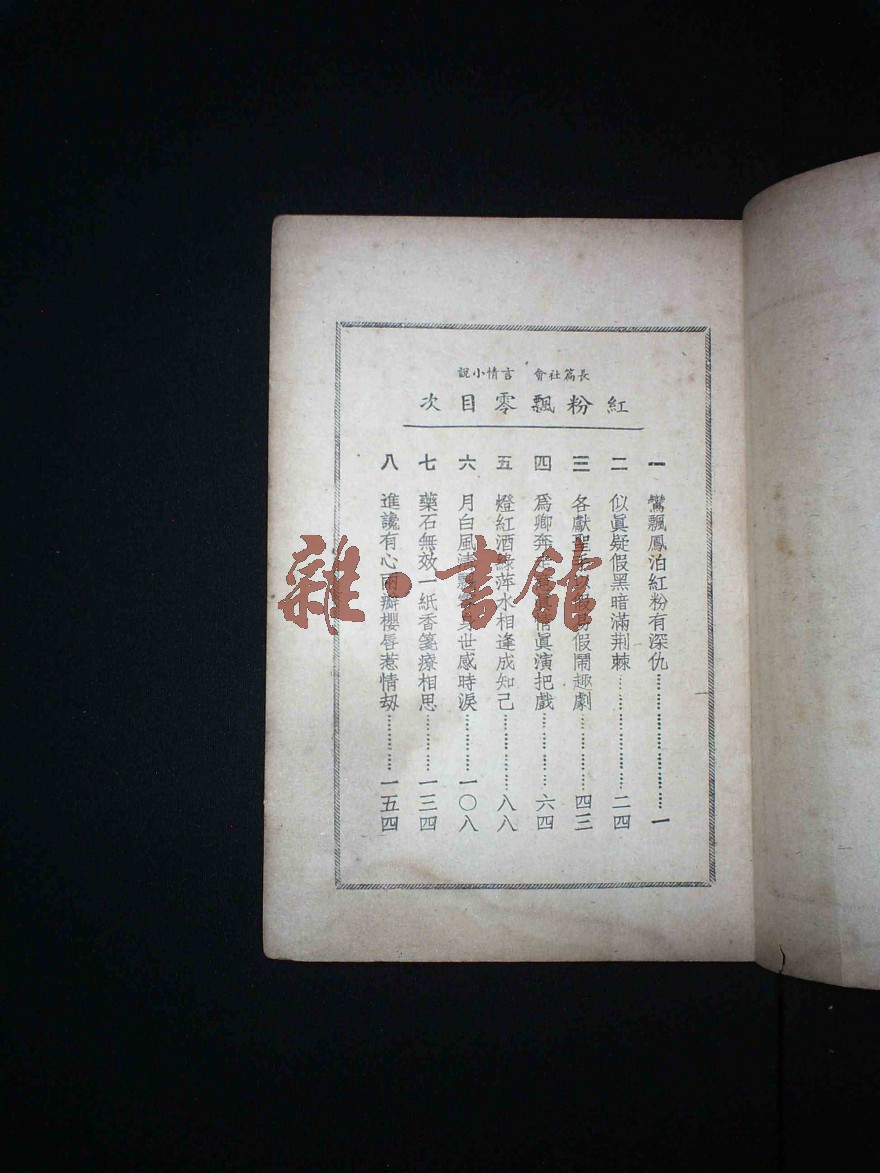 長篇社會 言情小說
紅粉飄零目次
一 鸞飄鳳泊紅粉有深仇…………………一
二 似眞疑假黑暗滿荆棘…………………二四
三 各獻聖 假鬧趣劇……………四三
四 爲卿奔 眞演把戲……………六四
五 燈紅酒綠萍水相逢成知己……………八八
六 月白風清 身世感時淚…………一〇八
七 藥石無效一紙香箋療相思…………一三四
八 進讒有心兩瓣櫻唇惹情劫…………一五四
雜·書館